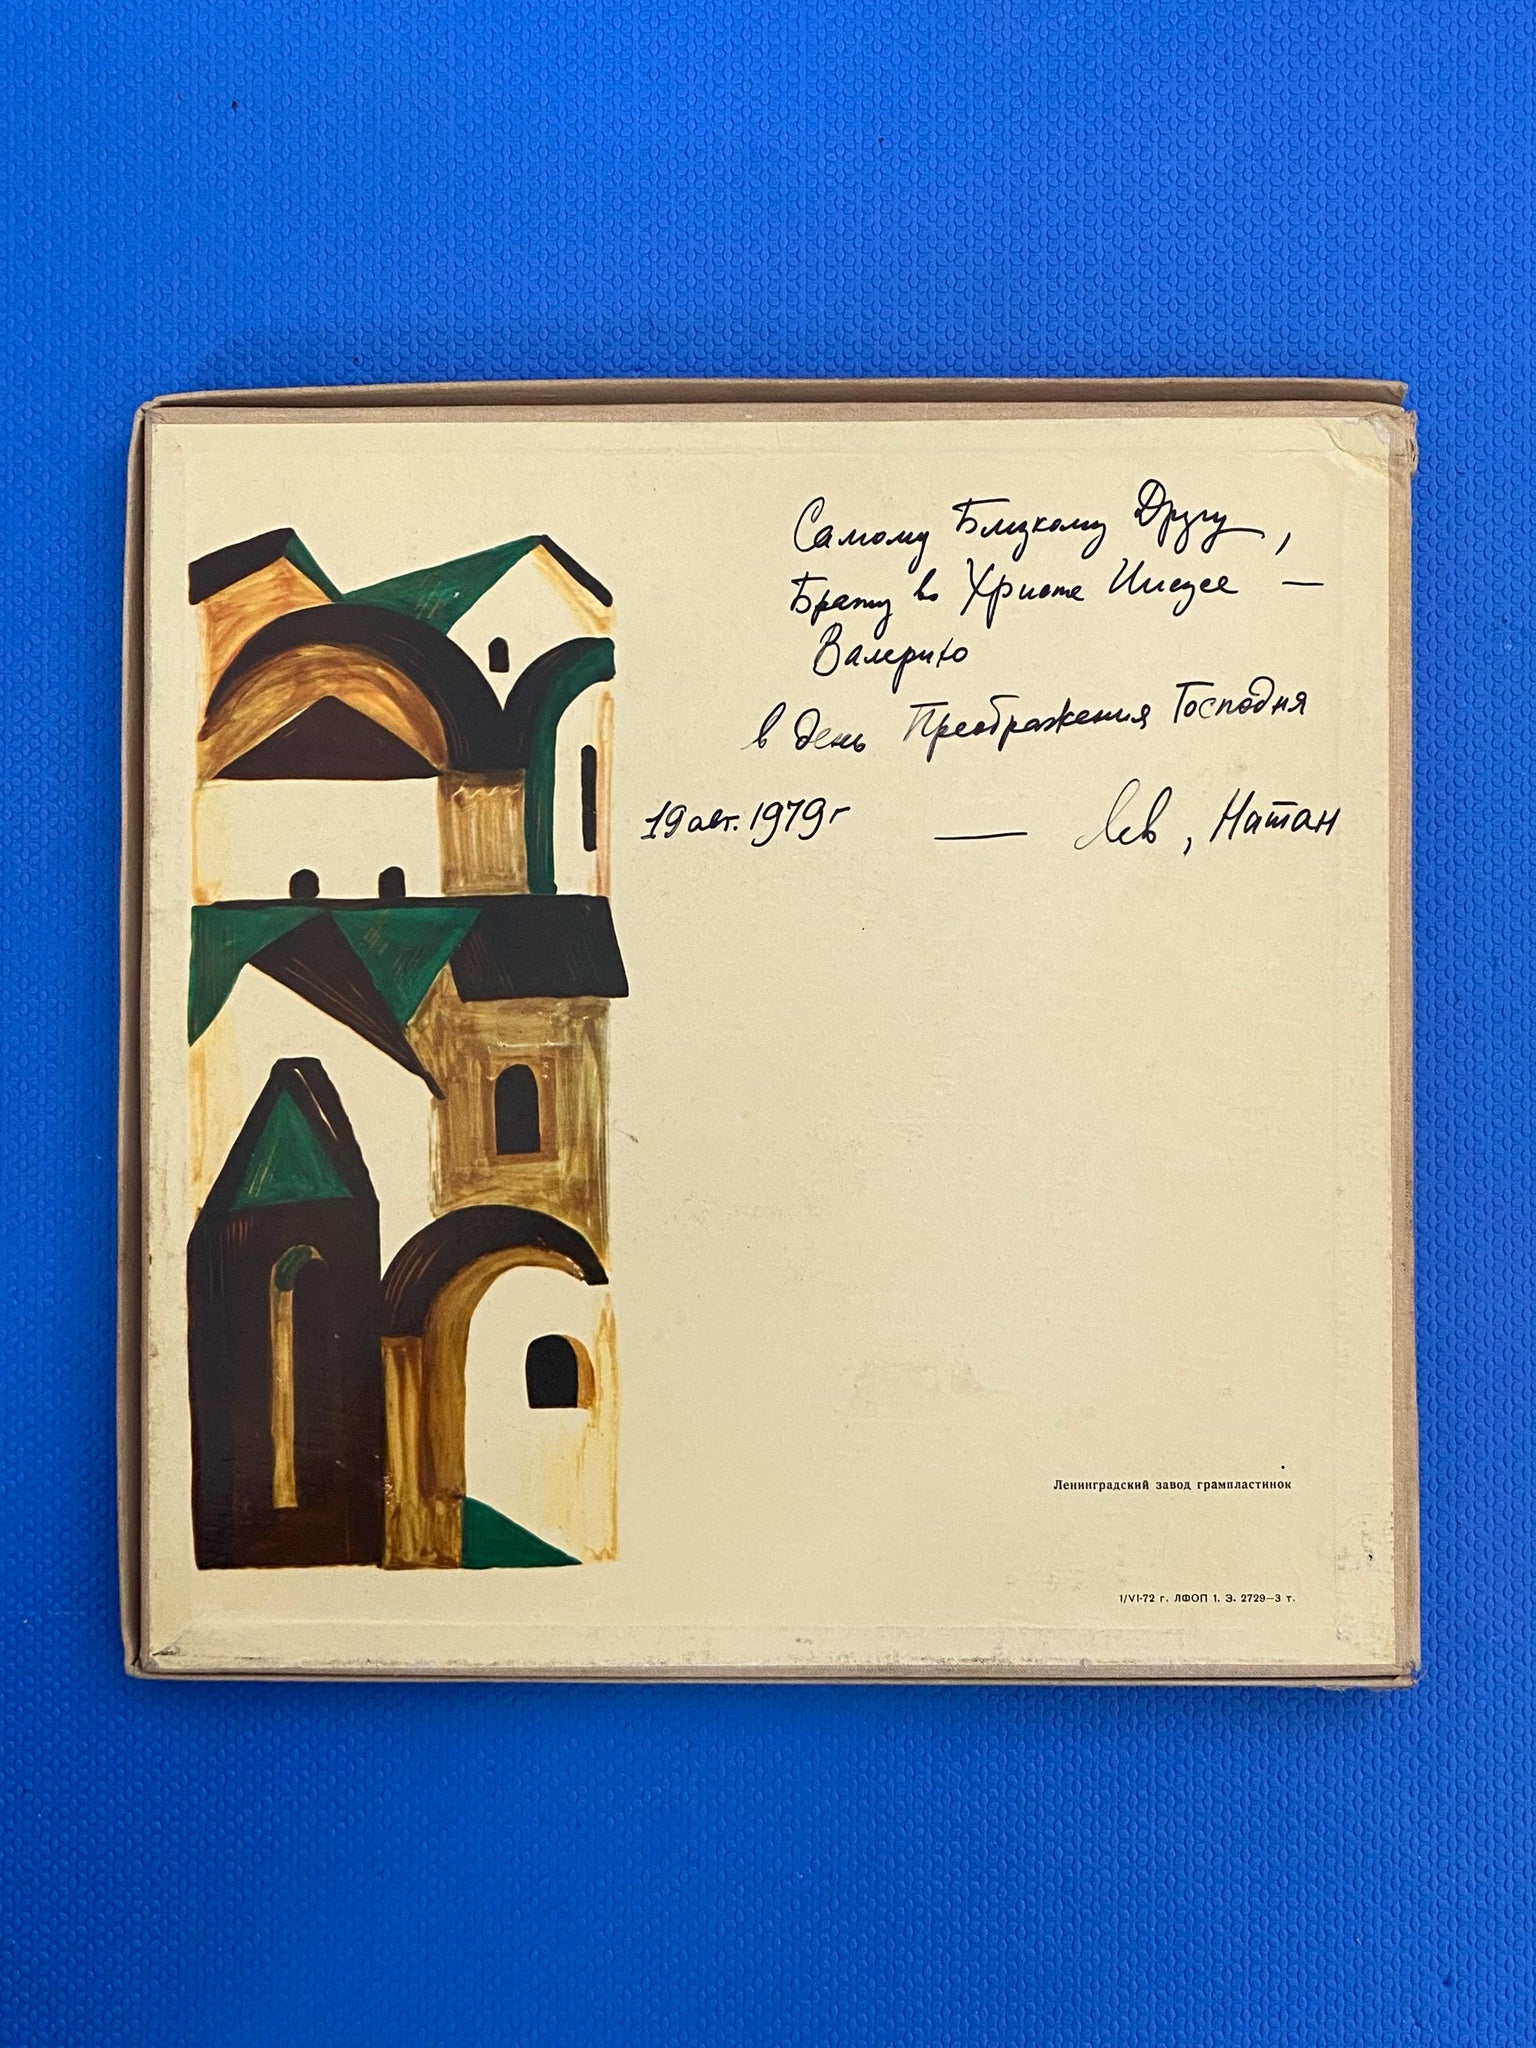 Самому Близкому Другу,
Брату во Христе Иисусе —
Валерию
в день Преображения Господня
19 авг. 1979 г — Лев, Натан
Ленинградский завод грампластинок
1/VI-72 г. ЛФОП 1. З. 2729—3 т.